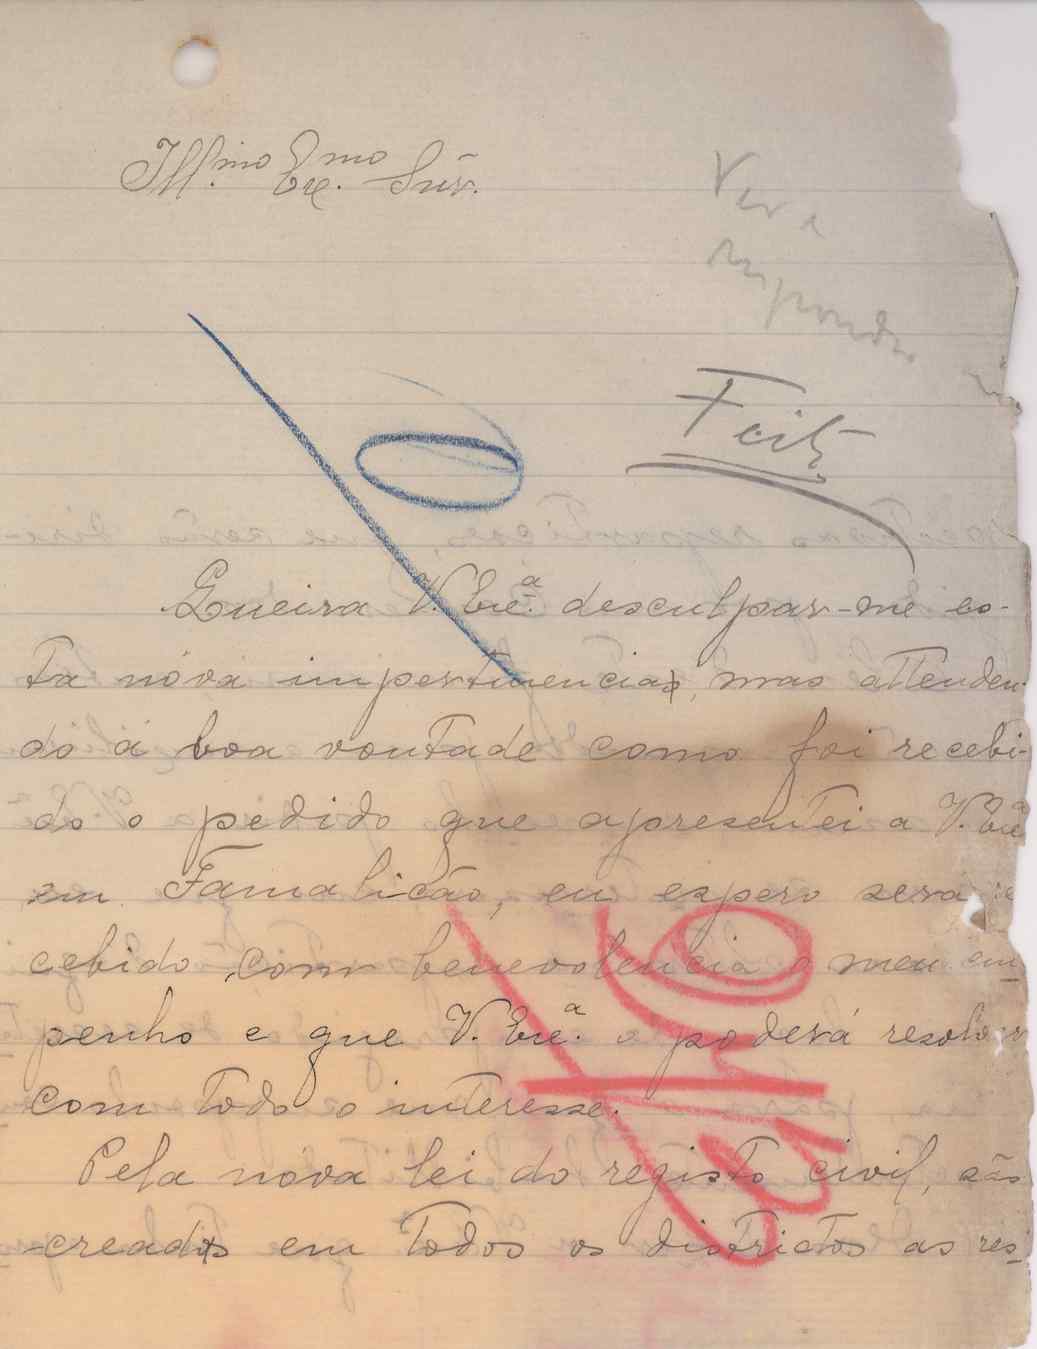 Ill.mo Ex.mo Snr.
Ver e
responder
Feito
Queira V. Exc.ª desculpar-me es-
ta nóva impertinencia, mas attenden-
do á boa vontade como foi recebi-
do o pedido que apresentei a V. Exª
em Famalicão, eu espero será re
cebido com benevolencia o meu em-
penho e que V. Exc.ª o poderá resolver
com todo o interesse.
Pela nóva lei do registo civil, são
creadas em todos os districtos as res-